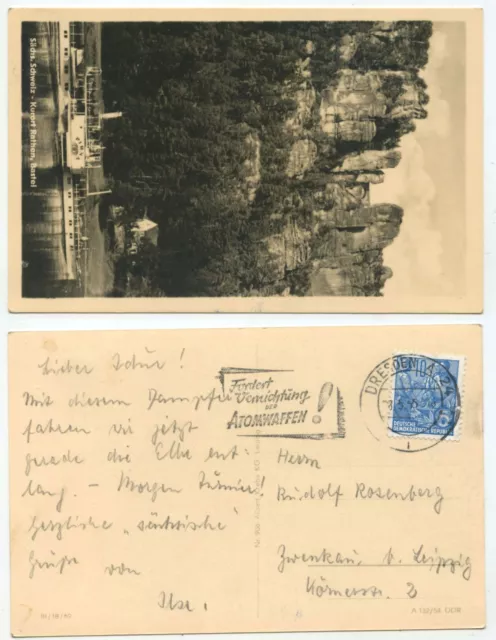 Sächs. Schweiz - Kurort Rathen, Bastei
Lieber
Mit diesem Dampfer
fahren wir jetzt
gerade die Elbe ent-
lang. - Morgen
Herzliche „sächsische"
Grüße von
Ilse.
Fordert
Vernichtung
DER
ATOMWAFFEN!
DRESDEN
DEUTSCHE
DEMOKRATISCHE REPUBLIK
Herrn
Rudolf Rosenberg
Zwenkau b. Leipzig
Körnerstr. 2
A 132/58 DDR